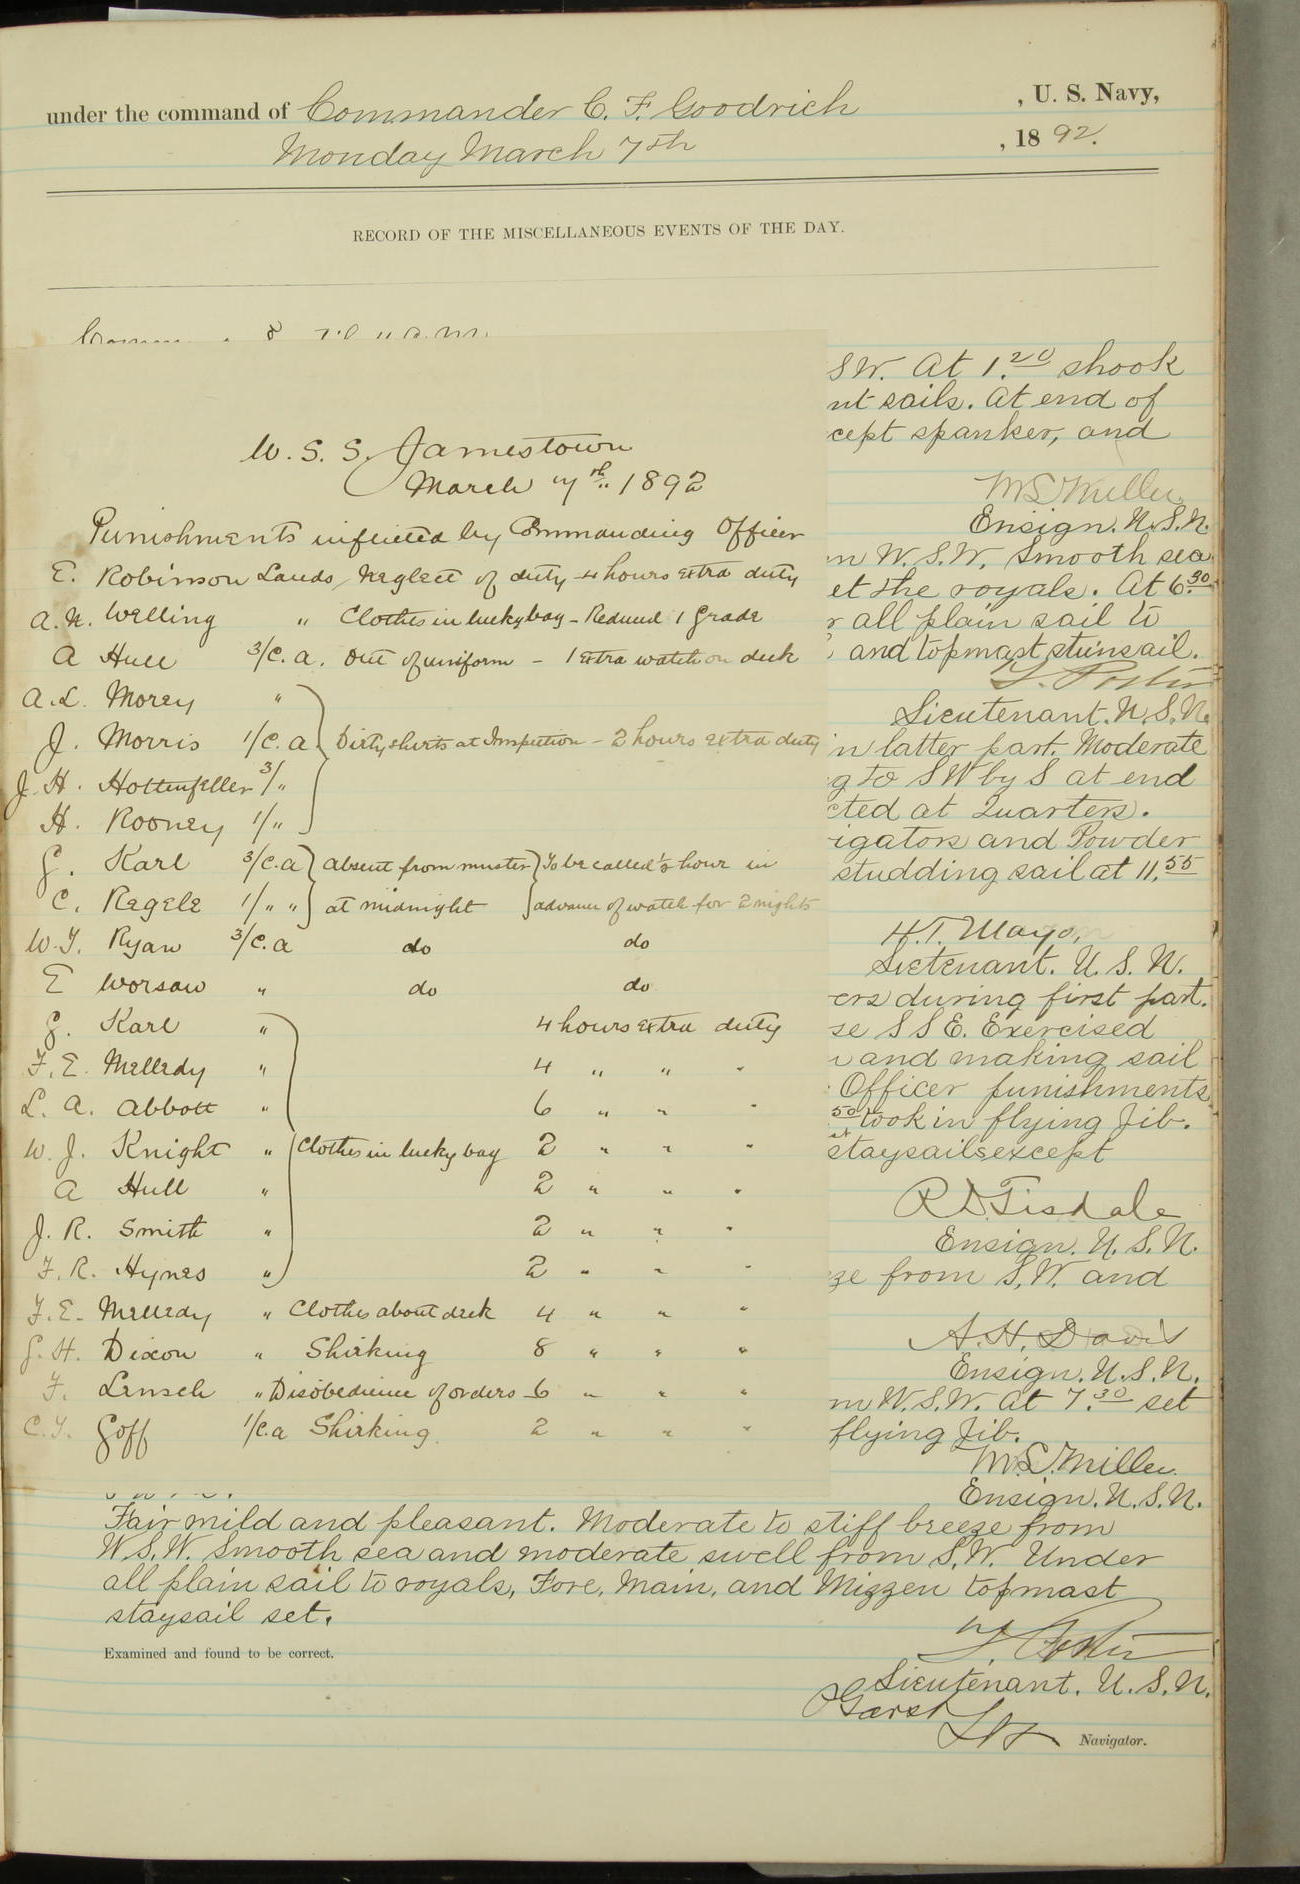 under the command of Commander C. F. Goodrich , U. S. Navy,
Monday March 7th , 1892.
RECORD OF THE MISCELLANEOUS EVENTS OF THE DAY.
U. S. S. Jamestown
March 7th 1892
Punishments inflicted by Commanding Officer
E. Robinson Lands Neglect of duty - 4 hours extra duty
A. N. Welling " Clothes in lucky bag - Reduced 1 grade
A Hull 3/C. a. Out of uniform - 1 extra watch on deck
A. L. Morey "
J. Morris 1/C. a. Dirty shirts at Inspection - 2 hours extra duty
J. H. Hottenfeller 3/ "
H. Rooney 1/ "
G. Karl 3/C. a absent from muster To be called ½ hour in
C. Regele 1/ " " at midnight advance of watch for 2 nights
W. J. Ryan 3/C. a do do
E Worsaw " do do
G. Karl " 4 hours extra duty
F. E. Melledy " 4 " " "
L. A. Abbott " 6 " " "
W. J. Knight " Clothes in lucky bag 2 " " "
A Hull " 2 " " "
J. R. Smith " 2 " " "
F. R. Hynes " 2 " " "
F. E. Melledy " Clothes about deck 4 " " "
G. H. Dixon " Shirking 8 " " "
F. Lensch " Disobedience of orders - 6 " " "
C. J. Goff 1/C. a Shirking 2 " " "
SW. At 1.20 shook
nt sails. At end of
cept spanker, and
M L Miller
Ensign. U. S. N.
m W. S. W. Smooth sea
et the royals. At 6.30
r all plain sail to
and topmast stunsail.
Lieutenant. U. S. N.
in latter part. Moderate
g to SW by S at end
cted at Quarters.
igators and Powder
studding sail at 11.55
H. T. Mayo,
Lietenant. U. S. N.
ers during first part.
se S S E. Exercised
and making sail
Officer punishments
50 took in flying Jib.
staysails except
R D. Tisdale
Ensign. U. S. N.
ze from S. W. and
A. H. Davis
Ensign. U. S. N.
m W. S. W. At 7.30 set
flying Jib.
M. L. Miller
Ensign. U. S. N.
Fair mild and pleasant. Moderate to stiff breeze from
W. S. W. Smooth sea and moderate swell from S. W. Under
all plain sail to royals, Fore, Main, and Mizzen topmast
staysail set.
Examined and found to be correct.
Lieutenant. U. S. N.
Garst
Navigator.